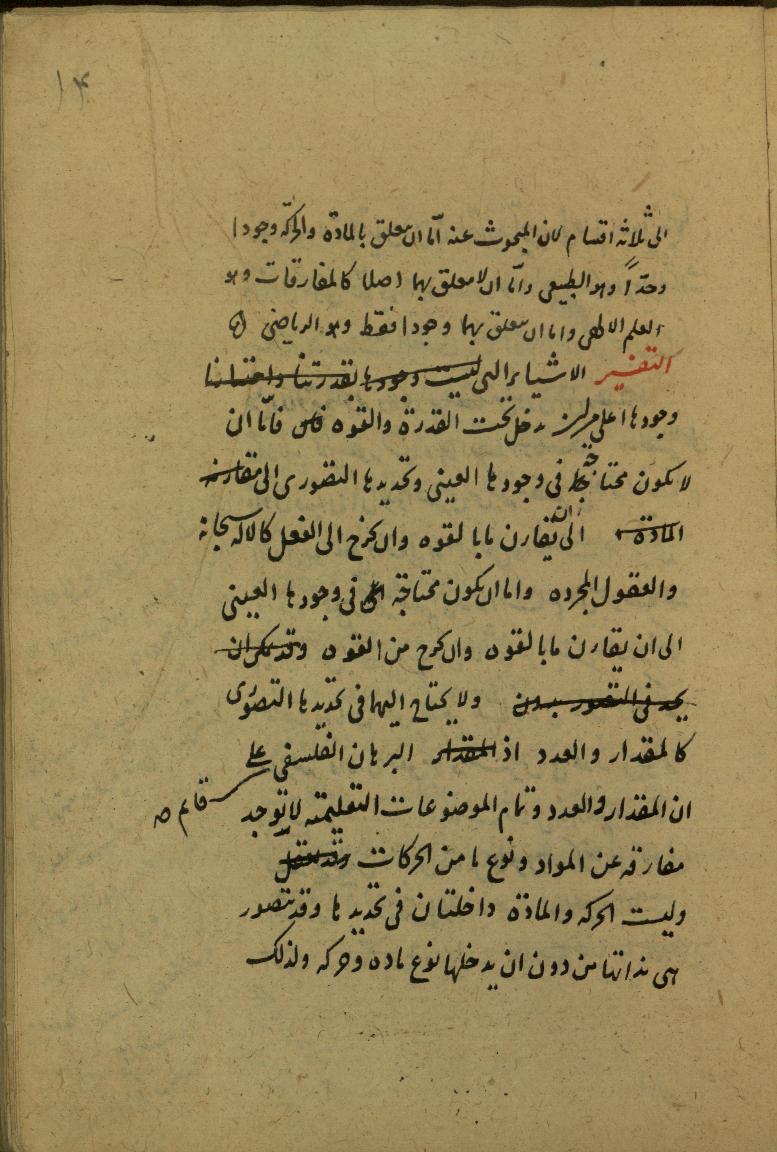 ۱۴
الی ثلاثة اقسام لان المبحوث عنه امّا ان یتعلق بالمادة والحرکة وجودا
وحدّاً وهو الطبیعی وامّا ان لا یتعلق بهما اصلا کالمفارقات وهو
العلم الالهی واما ان یتعلق بهما وجودا فقط وهو الریاضی
التفسیر الاشیاء التی لیست وجودها بقدرتنا واختیارنا
وجودها اعلی من ان یدخل تحت القدرة والقوه فامّا ان
لا یکون محتاجة فی وجودها العینی وتحدیدها التصوری الی مقارنة
المادة الی ان یقارن ما بالقوه وان یخرج الی الفعل کالاله سبحانه
والعقول المجرده واما ان یکون محتاجة فی وجودها العینی
الی ان یقارن ما بالقوه وان یخرج من القوه وقد یمکن ان
یحد فی التصور بدون ولا یحتاج الیهما فی تحدیدها التصوری
کالمقدار والعدد اذ المقدار البرهان الفلسفی علی
ان المقدار والعدد وتمام الموضوعات التعلیمیة لا توجد قایم
مفارقة عن المواد ونوع ما من الحرکات
ولیست الحرکه والمادة داخلتان فی تحدیدها وقد تتصور
هی بذاتها من دون ان یدخلها نوع ماده وحرکه ولذلک